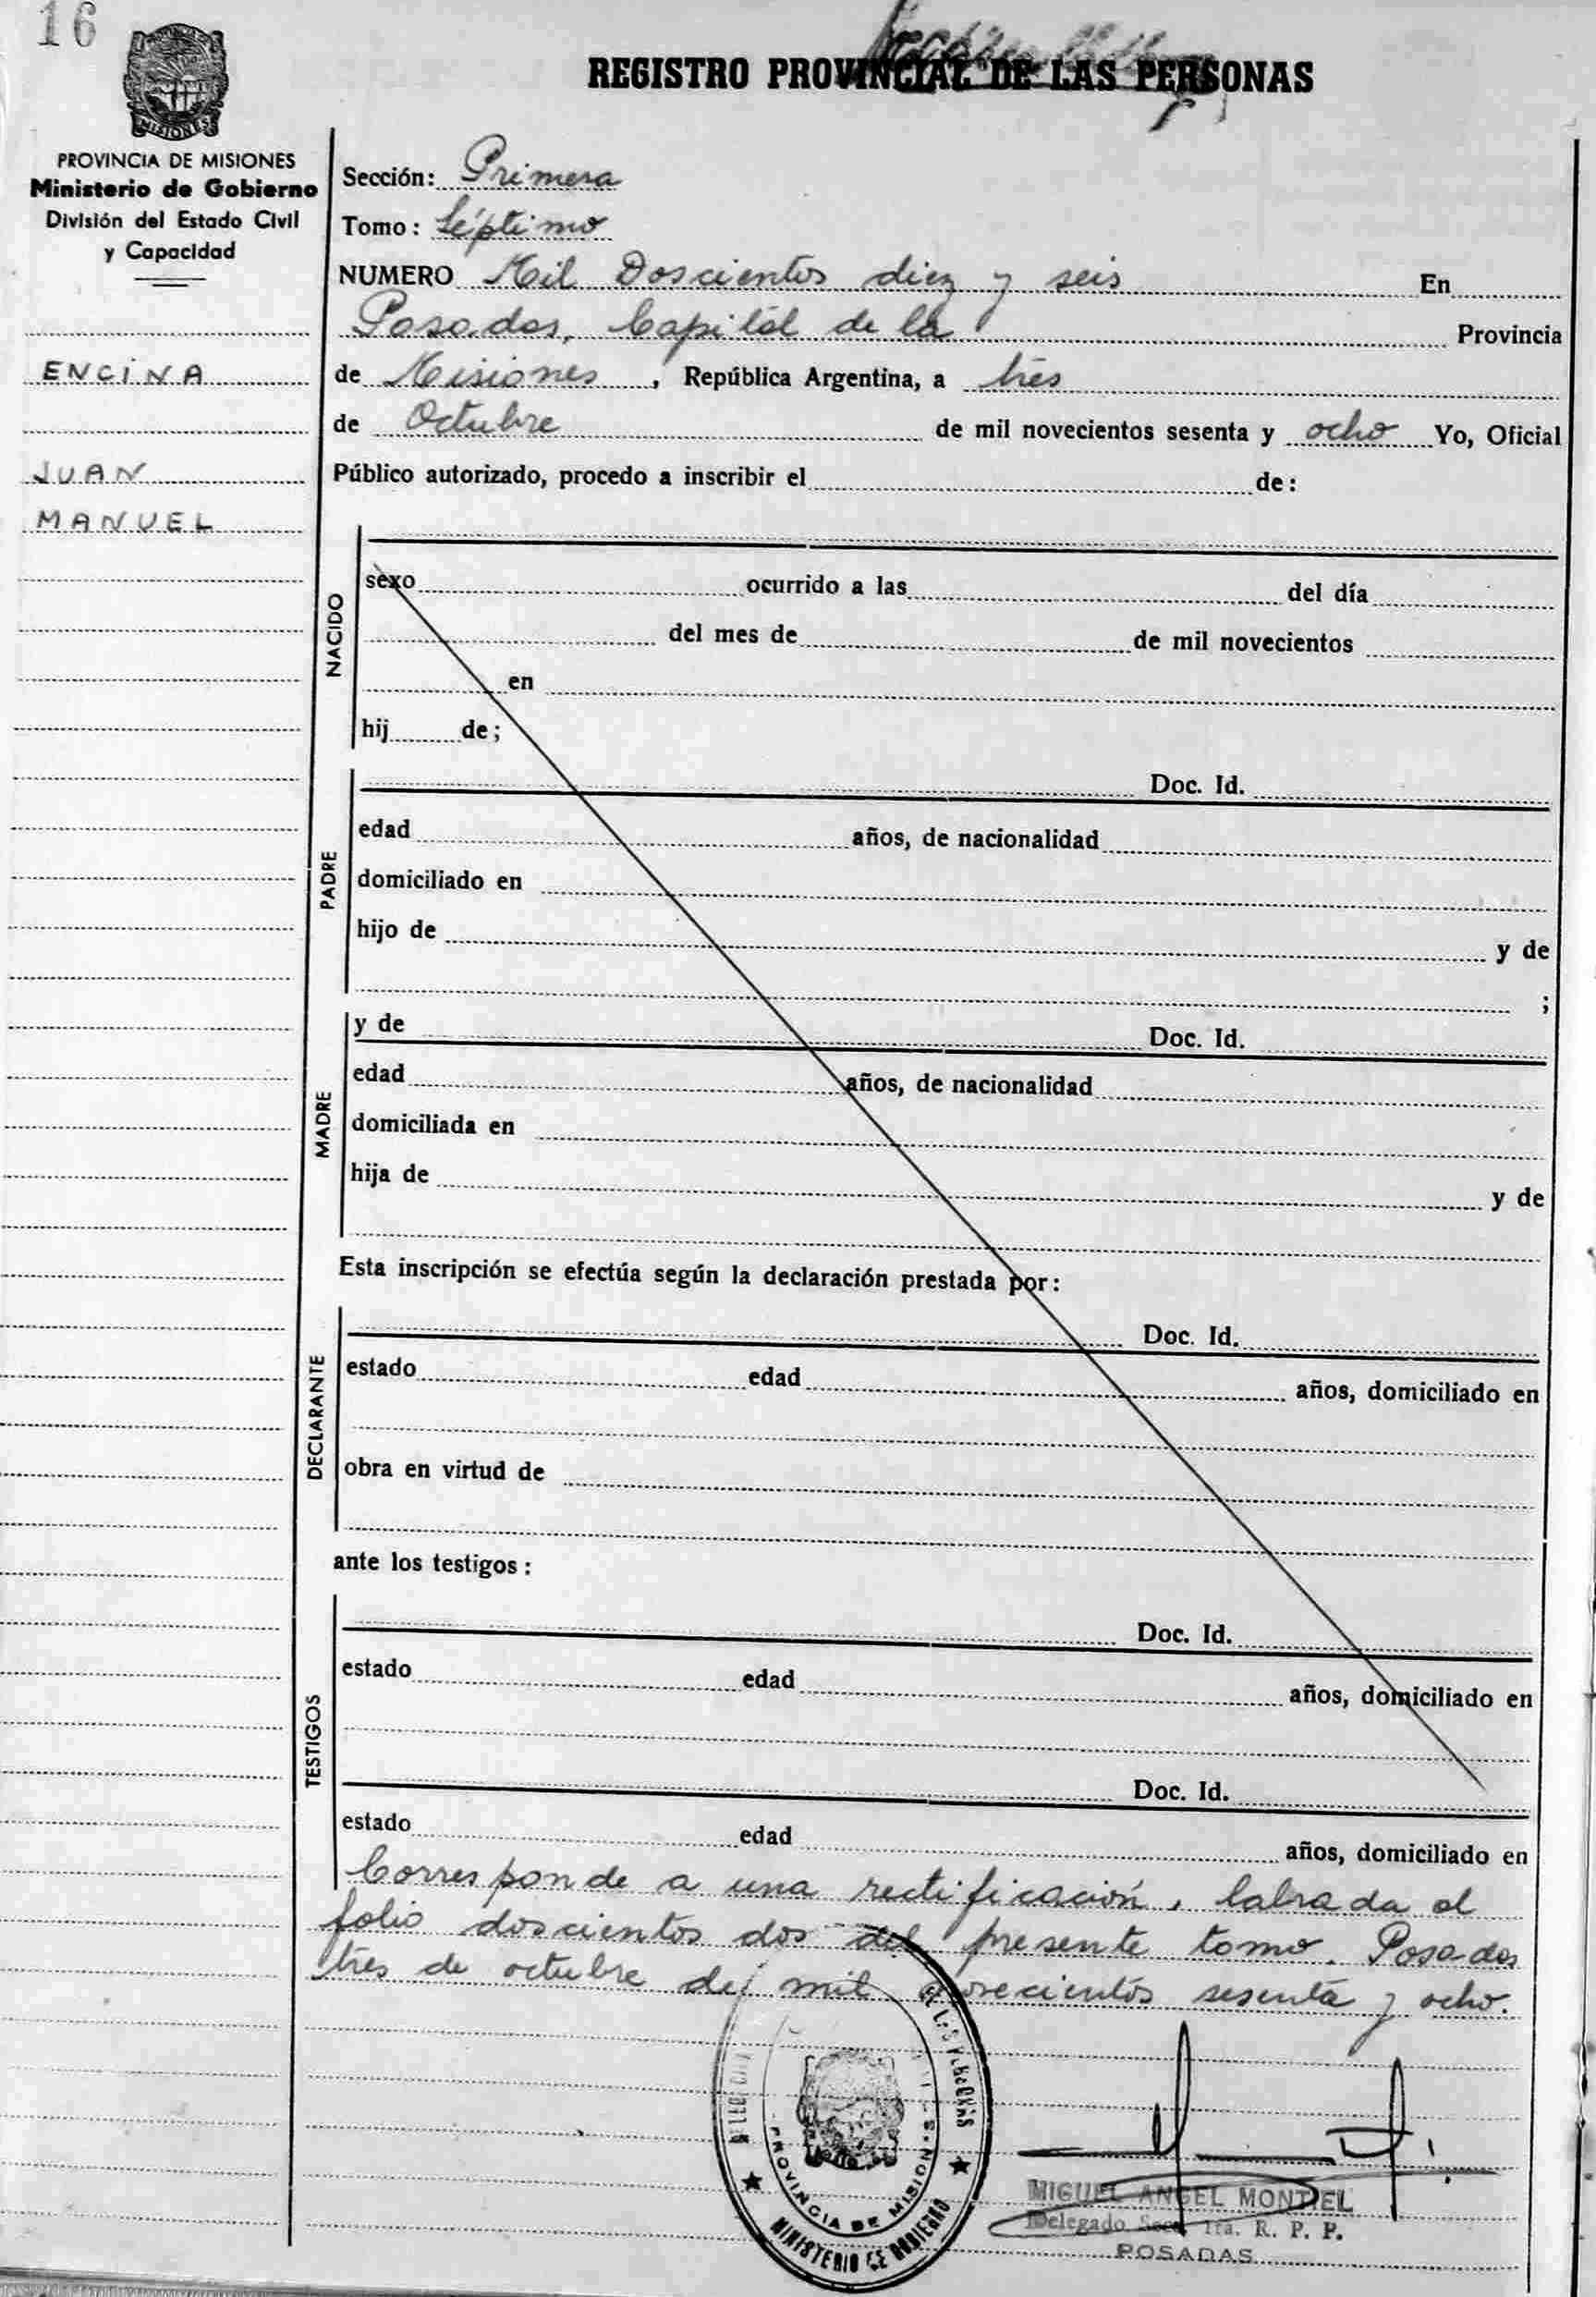 16
REGISTRO PROVINCIAL DE LAS PERSONAS
MISIONES
PROVINCIA DE MISIONES
Ministerio de Gobierno
División del Estado Civil
y Capacidad
ENCINA
JUAN
MANUEL
Sección: Primera
Tomo: Séptimo
NUMERO Mil Doscientos diez y seis En
Posadas, Capital de la Provincia
de Misiones, República Argentina, a tres
de Octubre de mil novecientos sesenta y ocho Yo, Oficial
Público autorizado, procedo a inscribir el de:
NACIDO
sexo ocurrido a las del día
del mes de de mil novecientos
en
hij de;
PADRE
Doc. Id.
edad años, de nacionalidad
domiciliado en
hijo de y de
;
MADRE
y de Doc. Id.
edad años, de nacionalidad
domiciliada en
hija de y de
Esta inscripción se efectúa según la declaración prestada por:
DECLARANTE
Doc. Id.
estado edad años, domiciliado en
obra en virtud de
ante los testigos:
TESTIGOS
Doc. Id.
estado edad años, domiciliado en
Doc. Id.
estado edad años, domiciliado en
Corresponde a una rectificación, labrada al
folio doscientos dos del presente tomo. Posadas
tres de octubre de mil novecientos sesenta y ocho.
DE LAS PERSONAS
PROVINCIA DE MISIONES
MINISTERIO DE GOBIERNO
MIGUEL ANGEL MONTIEL
Delegado Secc. 1ra. R. P. P.
POSADAS